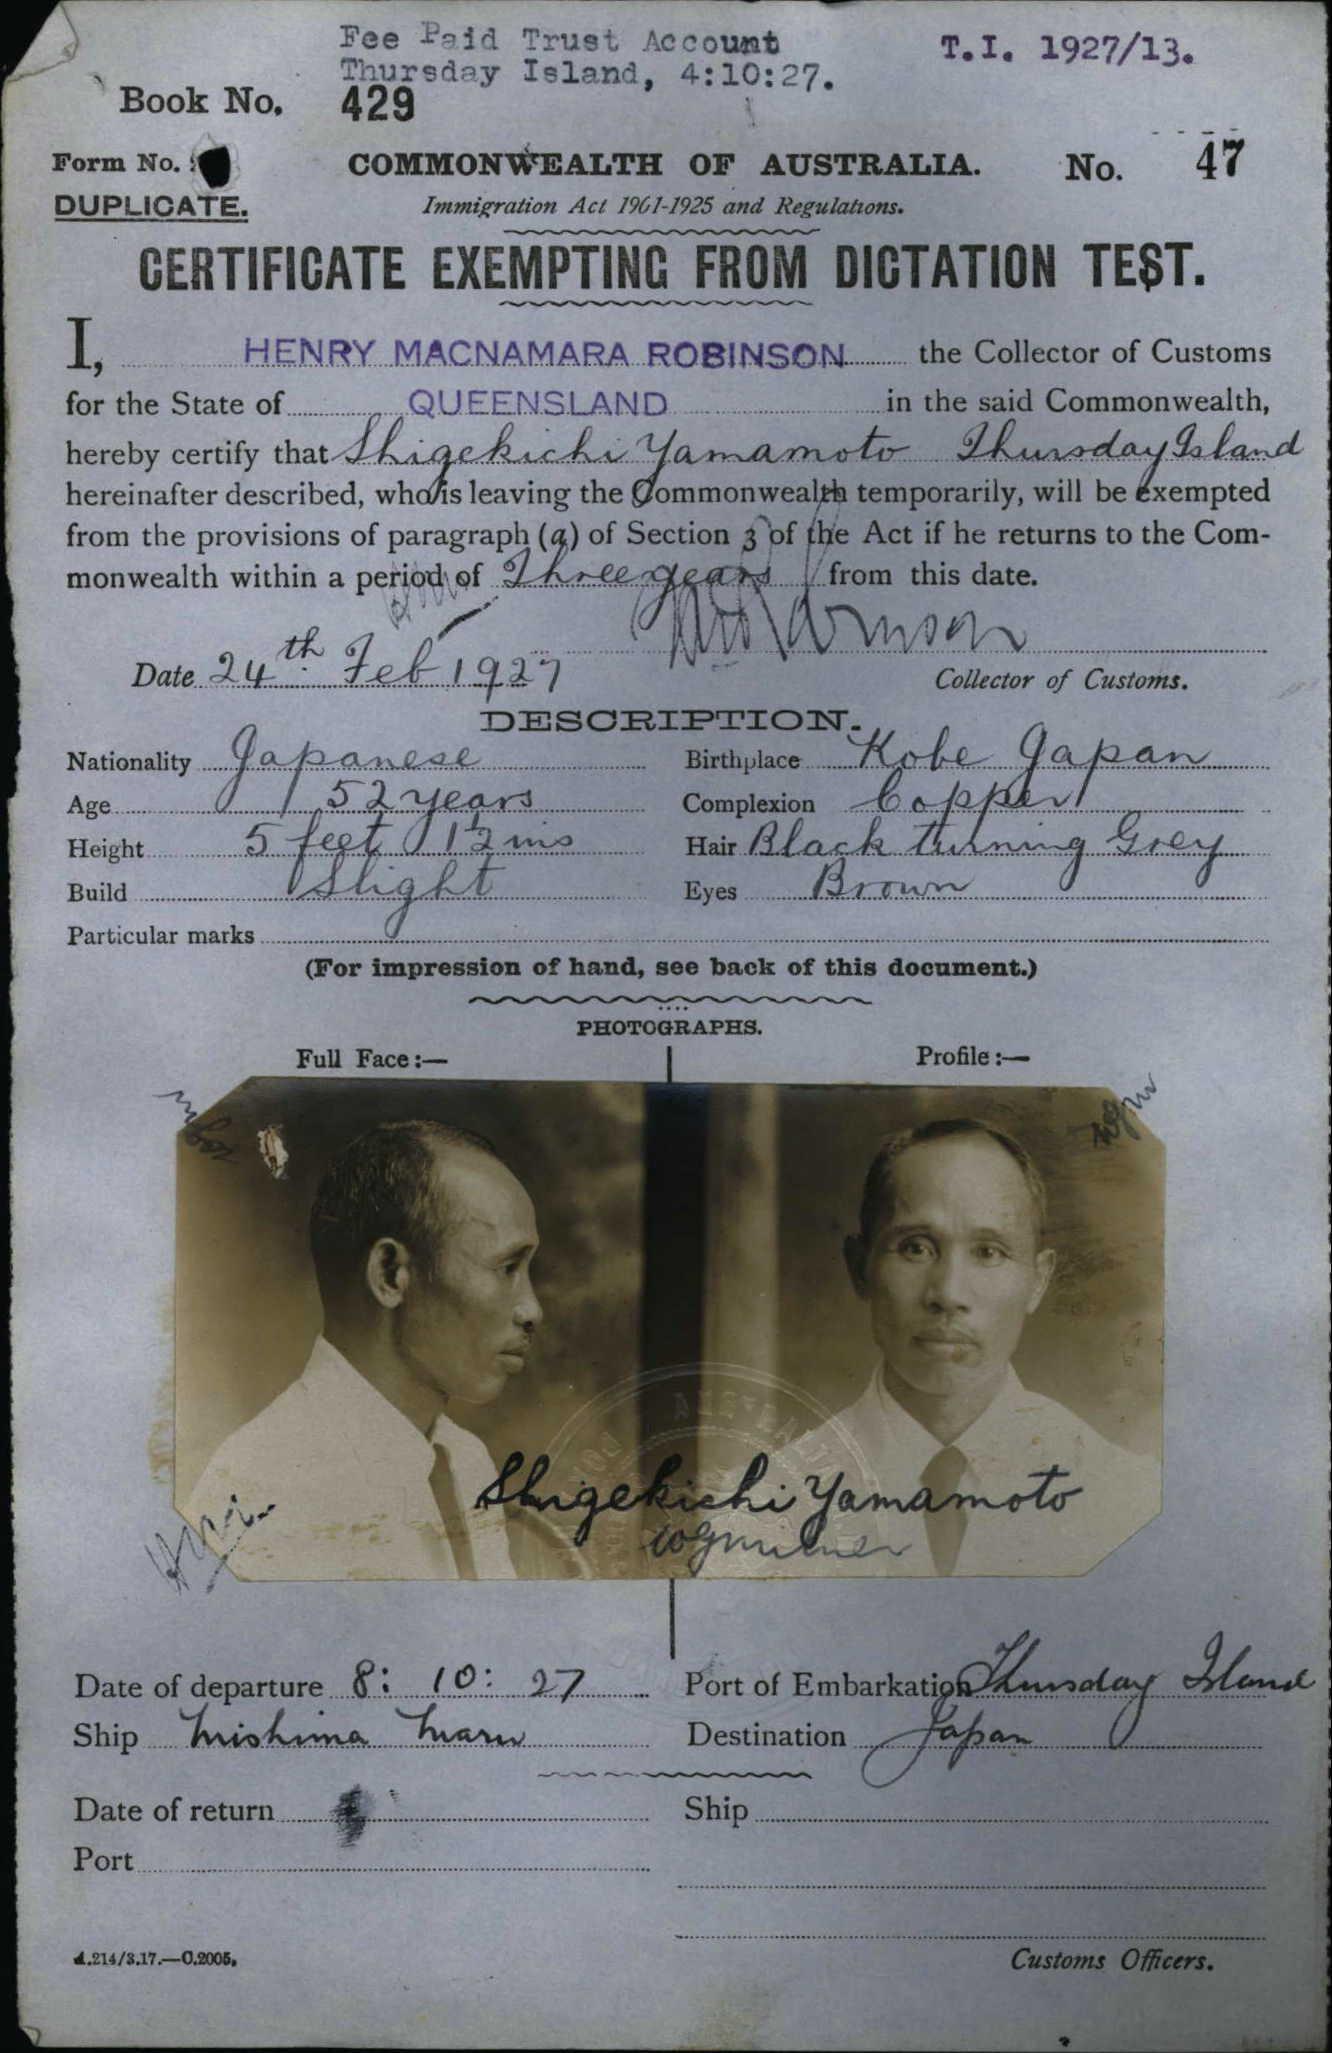 Fee Paid Trust Account
Thursday Island, 4:10:27.
T.I. 1927/13.
Book No. 429
Form No.
COMMONWEALTH OF AUSTRALIA.
No. 47
DUPLICATE.
Immigration Act 1901-1925 and Regulations.
CERTIFICATE EXEMPTING FROM DICTATION TEST.
I, HENRY MACNAMARA ROBINSON the Collector of Customs
for the State of QUEENSLAND in the said Commonwealth,
hereby certify that Shigekichi Yamamoto Thursday Island
hereinafter described, who is leaving the Commonwealth temporarily, will be exempted
from the provisions of paragraph (a) of Section 3 of the Act if he returns to the Com-
monwealth within a period of Three years from this date.
Date 24th Feb 1927
Collector of Customs.
DESCRIPTION.
Nationality Japanese
Birthplace Kobe Japan
Age 52 years
Complexion Copper
Height 5 feet 1½ ins
Hair Black turning Grey
Build Slight
Eyes Brown
Particular marks
(For impression of hand, see back of this document.)
PHOTOGRAPHS.
Full Face:—
Profile:—
Shigekichi Yamamoto
Date of departure 8: 10: 27
Port of Embarkation Thursday Island
Ship Mishima Maru
Destination Japan
Date of return
Ship
Port
A.214/3.17.—C.2005.
Customs Officers.